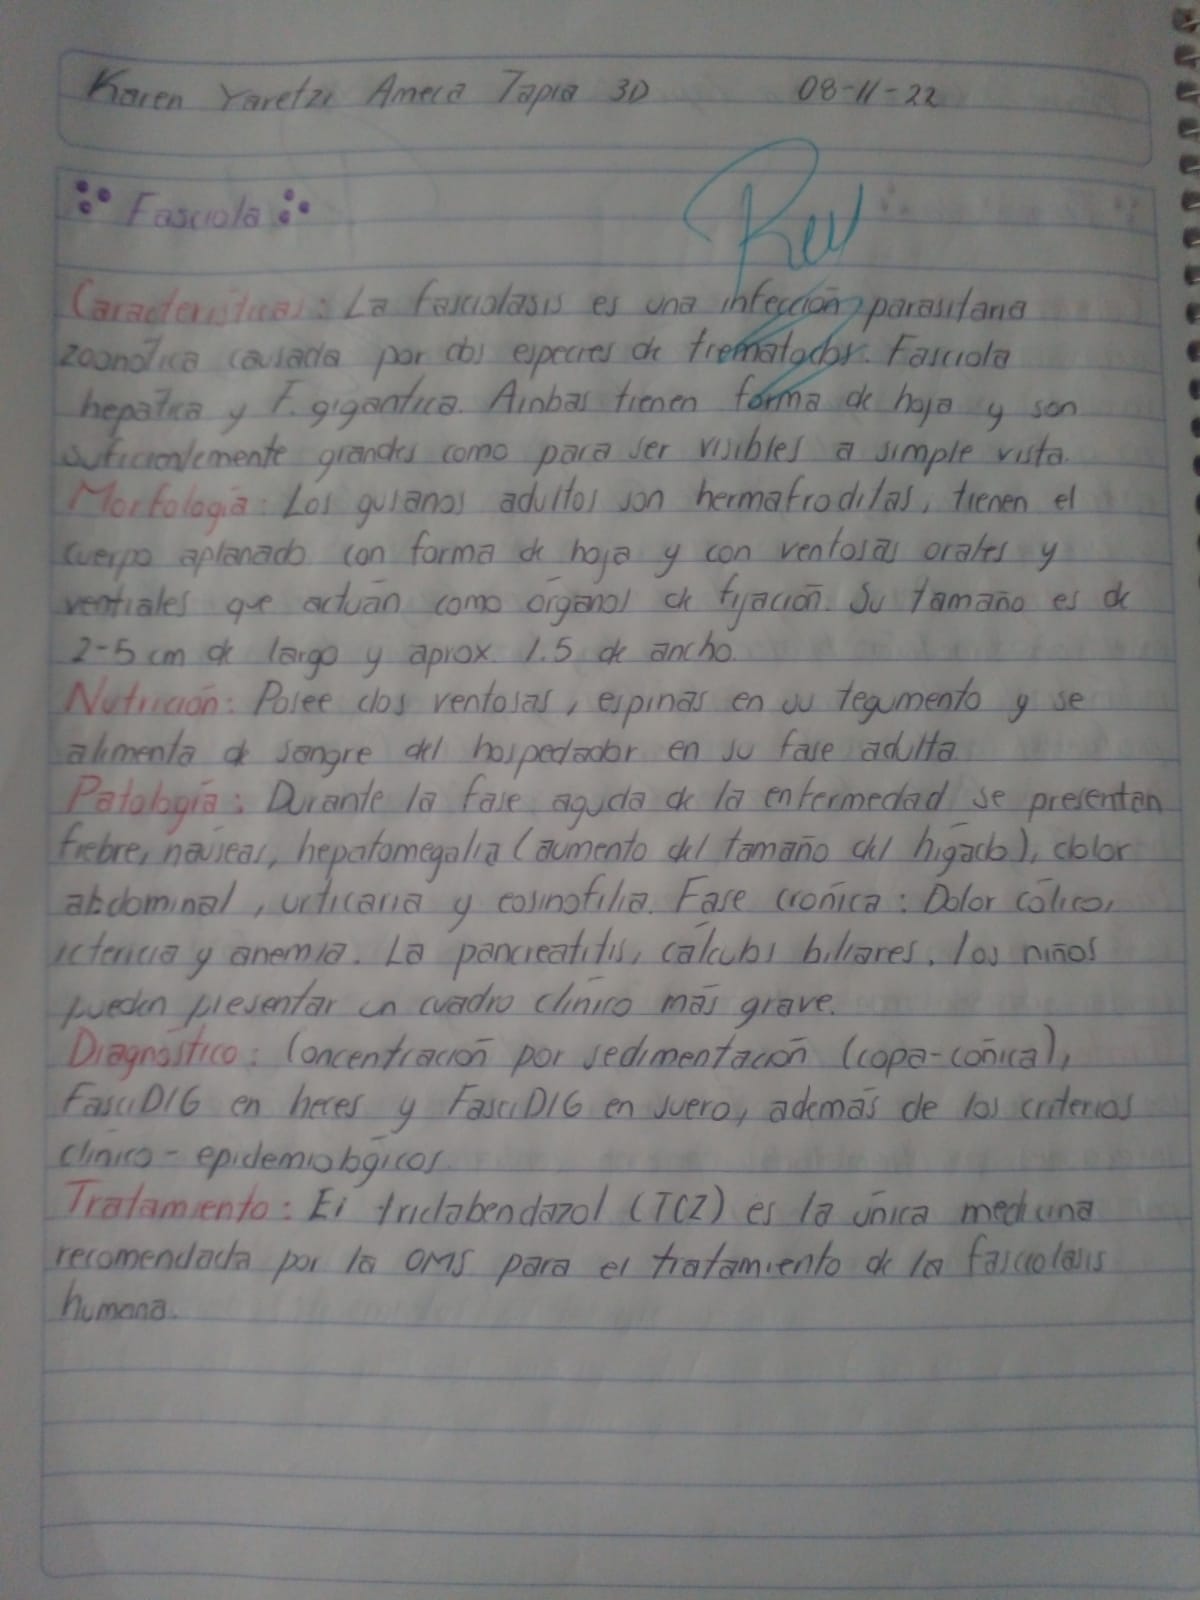 Karen Yaretzi Ameca Tapia 3D 08-11-22
Fasciola
Rev
Características: La fasciolasis es una infección parasitaria
zoonótica causada por dos especies de trematodos. Fasciola
hepática y F. gigantica. Ambas tienen forma de hoja y son
suficientemente grandes como para ser visibles a simple vista.
Morfología: Los gusanos adultos son hermafroditas, tienen el
cuerpo aplanado con forma de hoja y con ventosas orales y
ventrales que actúan como órganos de fijación. Su tamaño es de
2-5 cm de largo y aprox. 1.5 de ancho.
Nutrición: Posee dos ventosas, espinas en su tegumento y se
alimenta de sangre del hospedador en su fase adulta.
Patología: Durante la fase aguda de la enfermedad se presentan
fiebre, náuseas, hepatomegalia (aumento del tamaño del hígado), dolor
abdominal, urticaria y eosinofilia. Fase crónica: Dolor cólico,
ictericia y anemia. La pancreatitis, cálculos biliares. los niños
pueden presentar un cuadro clínico más grave.
Diagnóstico: Concentración por sedimentación (copa-cónica),
FasciDIG en heces y FasciDIG en suero, además de los criterios
clínico-epidemiológicos.
Tratamiento: El triclabendazol (TCZ) es la única medicina
recomendada por la OMS para el tratamiento de la fasciolasis
humana.